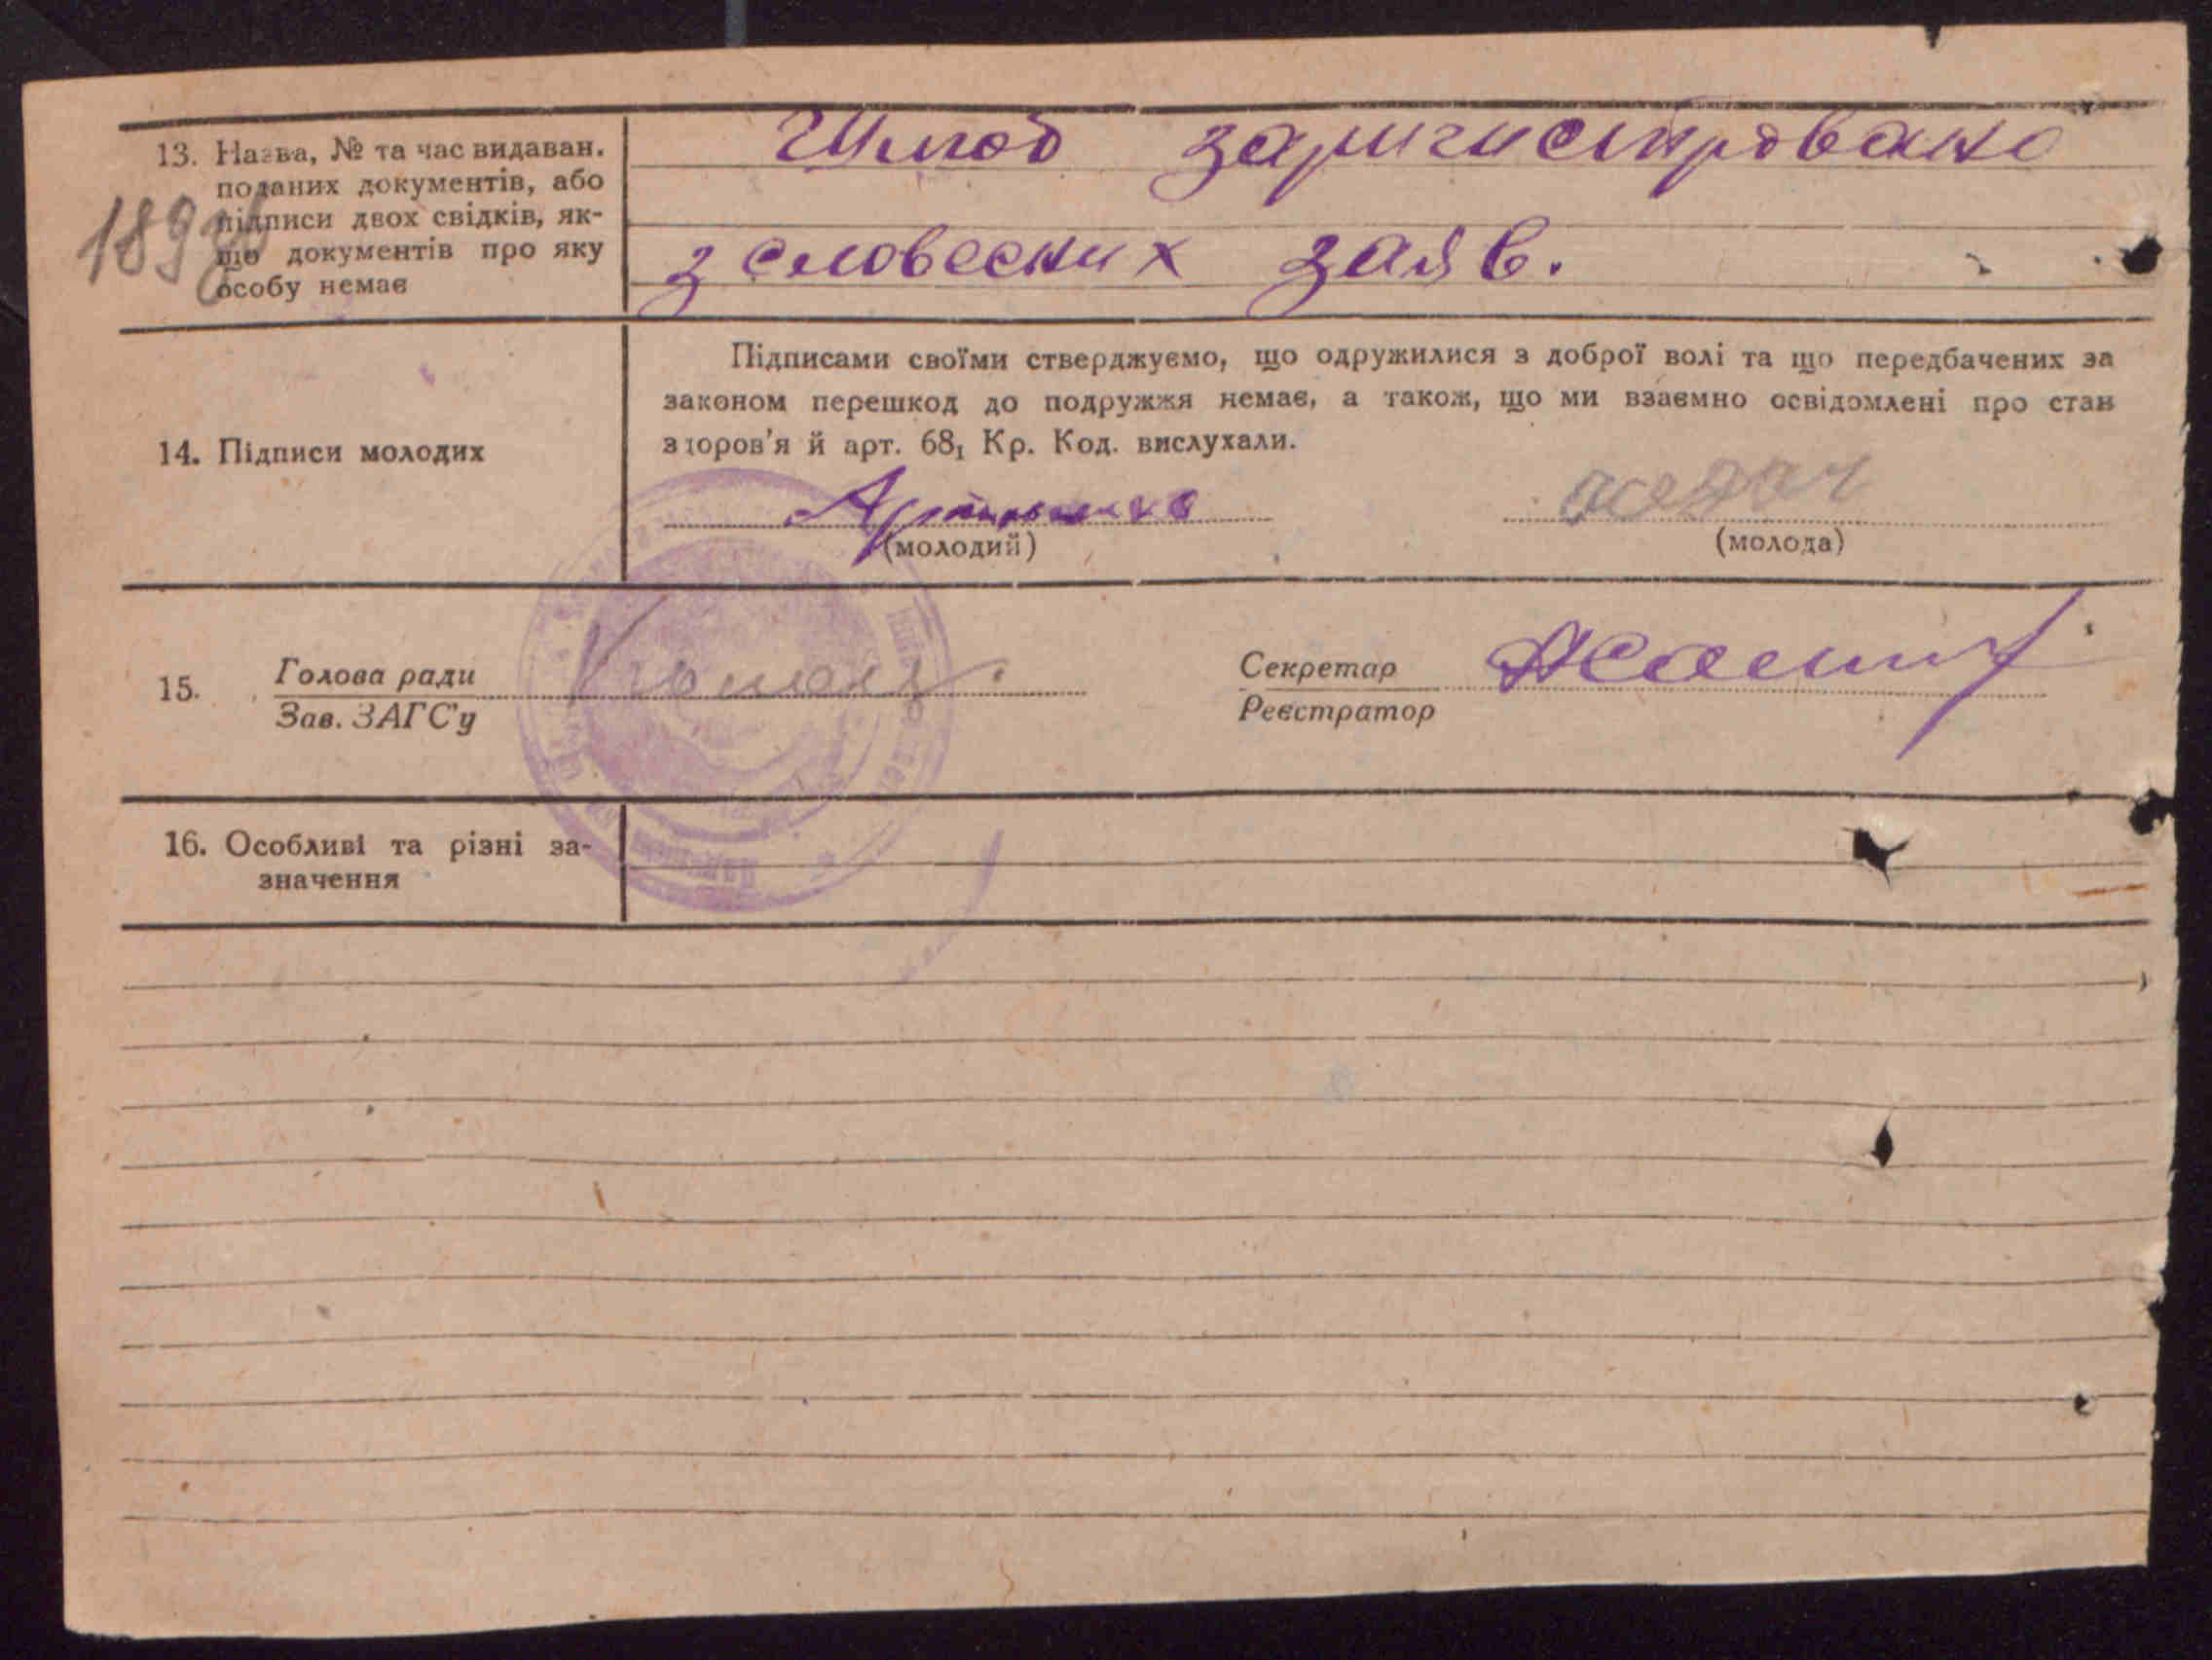 13. Назва, № та час видаван.
поданих документів, або
підписи двох свідків, як-
що документів про яку
особу немає
189
Шлюб заригистровано
з словесних заяв.
Підписами своїми стверджуємо, що одружилися з доброї волі та що передбачених за
законом перешкод до подружжя немає, а також, що ми взаємно освідомлені про стан
здоров'я й арт. 68₁ Кр. Код. вислухали.
14. Підписи молодих
(молодий)
(молода)
15. Голова ради
Зав. ЗАГС'у
Секретар
Реєстратор
16. Особливі та різні за-
значення